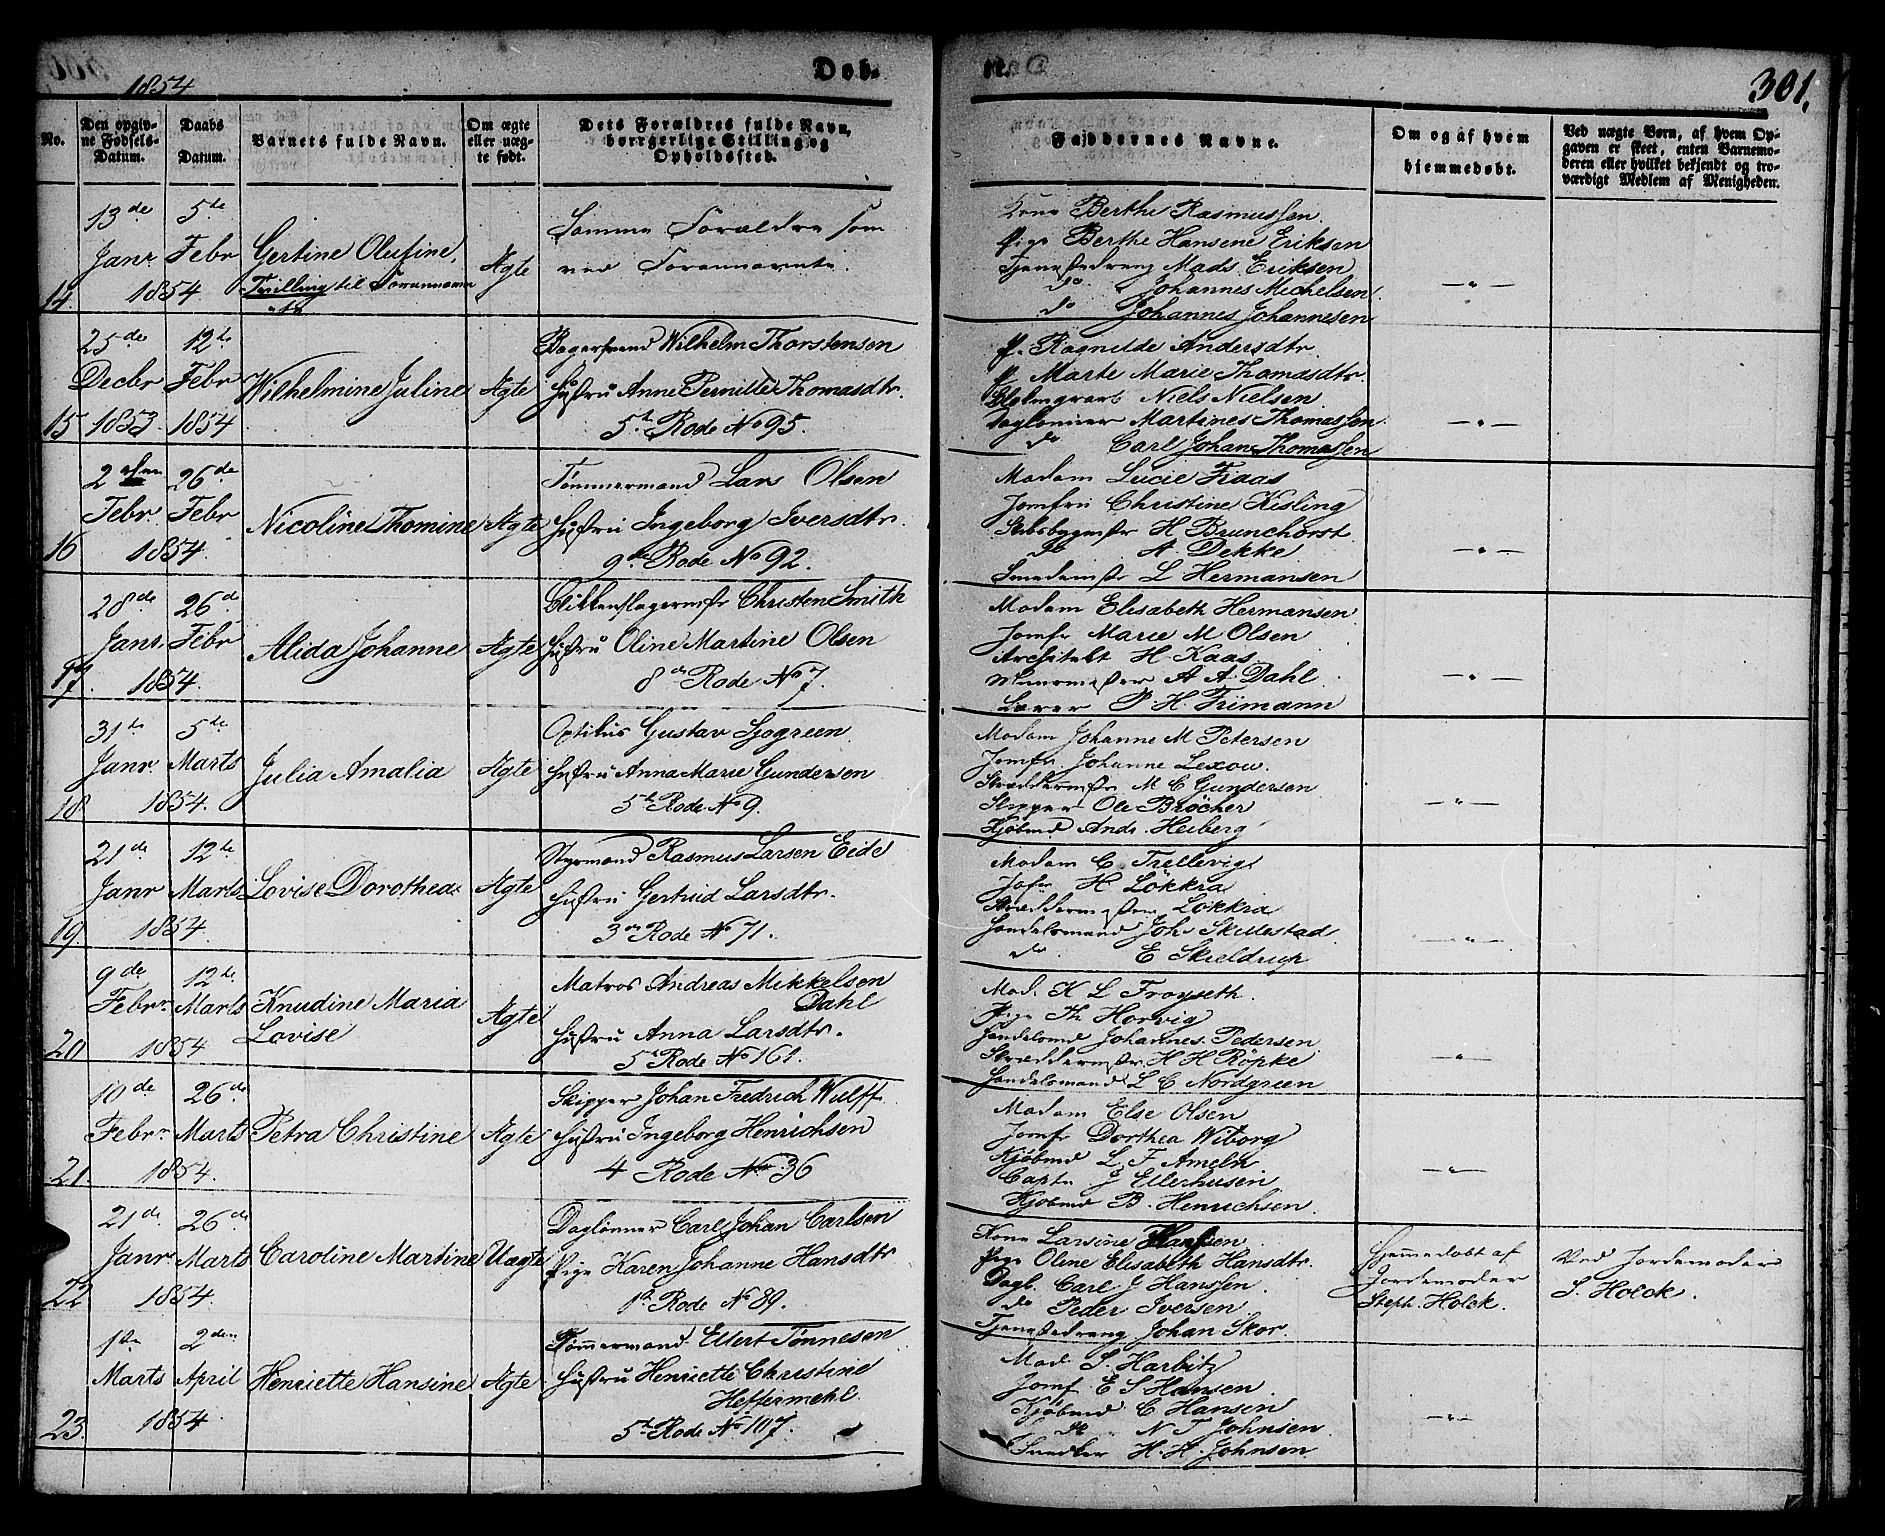 1854
Døb-
te.
301.
No.
Den opgiv-
ne Fødsels-
Datum.
Daabs
Datum.
Barnets fulde Navn.
Om ægte
eller uæg-
te født.
Dets Forældres fulde Navn,
borgerlige Stilling og
Opholdssted.
Faddernes Navne.
Om og af hvem
hjemmedøbt.
Ved uægte Børn, af hvem Op-
gaven er skeet, enten Barnemo-
deren eller hvilket bekjendt og tro-
værdigt Medlem af Menigheden.
14
13de
Janr
5te
Febr
1854.
Gertine Olufine,
Tvilling til Forannævn
te
Ægte
Samme Forældre som
ved Forannævnte.
Kone Berthe Rasmussen
Pige Berthe Hansene Eriksen
Tjenestedreng Mads Eriksen
do Johannes Michelsen
do Johannes Johannesen
— " —
15
25de
Decbr
1853.
12te
Febr
1854
Wilhelmine Juline
Ægte
Bagersvend Wilhelm Thorstensen
Hustru Anne Pernille Thomasdtr.
5te Rode No 95.
P. Ragnilde Andersdtr.
P Marte Marie Thomasdtr.
Niels Nielsen
Daglønner Martines Thomassen
do Carl Johan Thomassen
— " —
16
2den
Febr.
26de
Febr
1854.
Nicoline Thomine
Ægte
Tømmermand Lars Olsen
Hustru Ingeborg Iversdtr.
9de Rode No 92.
Madam Lucie Fraas
Jomfru Christine Kisling
Skibsbygmstr H Brunchorst
do A. Dekke
Smedemstr L Hermansen
— " —
17.
28de
Janr.
26de
Febr
1854.
Alida Johanne
Ægte
Blikkenslagermstr Christen Smith
Hustru Oline Martine Olsen
8de Rode No 7.
Madam Elisabeth Hermansen
Jomfr Marie M Olsen
Architekt H Kaas
Muurmester A A Dahl
Lærer P. H. Friimann
— " —
18
31te
Janr.
5te
Marts
1854.
Julia Amalia
Ægte
Optikus Gustav Sjogreen
Hustru Anna Marie Gundersen
5te Rode No 9.
Madam Johanne M Petersen
Jomfr Johanne Lexow.
Skræddermstr M C Gundersen
Skipper Ole Brøcher
Kjøbmd Andr. Heiberg
— " —
19.
21de
Janr
12te
Marts
1854.
Lovise Dorothea
Ægte
Styrmand Rasmus Larsen Eide
Hustru Gertrud Larsdtr.
3de Rode No 71.
Madam C. Trellevig
Jofr H Løkkra
Skræddermester Løkkra
Handelsmand Joh. Skulestad
do E Skieldrup
— " —
20
9de
Febr.
12te
Marts
1854
Knudine Maria
Lovise
Ægte
Matros Andreas Mikkelsen
Dahl
Hustru Anna Larsdtr.
5te Rode No 161.
Mad. K L Frøyseth.
Pige Th Horvig
Handelsmd Johannes Pedersen
Skræddermstr H H Röpke
Handelsmand L C Nordgreen
— " —
21.
10de
Febr.
26de
Marts
1854.
Petra Christine
Ægte
Skipper Johan Fredrich Wulff
Hustru Ingeborg Henrichsen
4 Rode No 36
Madam Else Olsen
Jomfr Dorthea Wiborg
Kjøbmd L. F Ameln
Captn J Ellerhusen
Kjøbmd B. Henrichsen
— " —
22
21de
Janr
26de
Marts
1854.
Caroline Martine
Uægte
Daglønner Carl Johan Carlsen
Pige Karen Johanne Hansdtr
1te Rode No 89.
Kone Larsine Hansen
Pige Oline Elisabeth Hansdtr.
Dagl. Carl J Hanssen
do Peder Iversen
Tjenestedreng Johan Skor.
Hjemmedøbt af
Jordemoder
Steph. Holck.
Ved Jordemoder
S. Holck.
23.
1ste
Marts
2den
April
1854
Henriette Hansine
Ægte
Tømmermand Ellert Tønnesen
Hustru Henriette Christine
Heffermehl.
5te Rode No 107.
Mad S. Harbitz
Jomf E S Hansen
Kjøbmd C. Hansen
do N T Johnsen
Snedker H. H. Johnsen
— " —